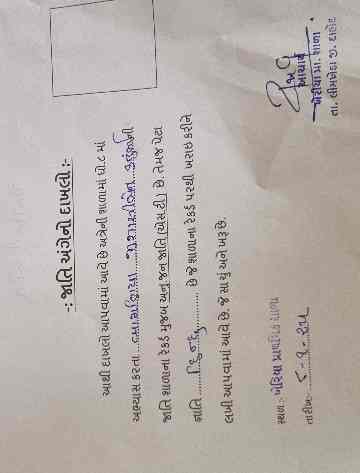 -: જાતિ અંગેનો દાખલો :-
આથી દાખલો આપવામાં આવે છે અત્રેની શાળામાં ધો.૮ માં
અભ્યાસ કરતા
જાતિ શાળાના રેકર્ડ મુજબ અનુ.જન જાતિ (એસ.ટી) છે. તેમજ પેટા
જાતિ ....હિન્દુ.... છે જે શાળાના રેકર્ડ પરથી ખરાઇ કરીને
લખી આપવામાં આવે છે. જે સાચું અને ખરૂ છે.
સ્થળ :- ખેરિયા પ્રાથમિક શાળા
તારીખ:-
આચાર્ય
પ્રા. શાળા
તા. લીમખેડા જી. દાહોદ